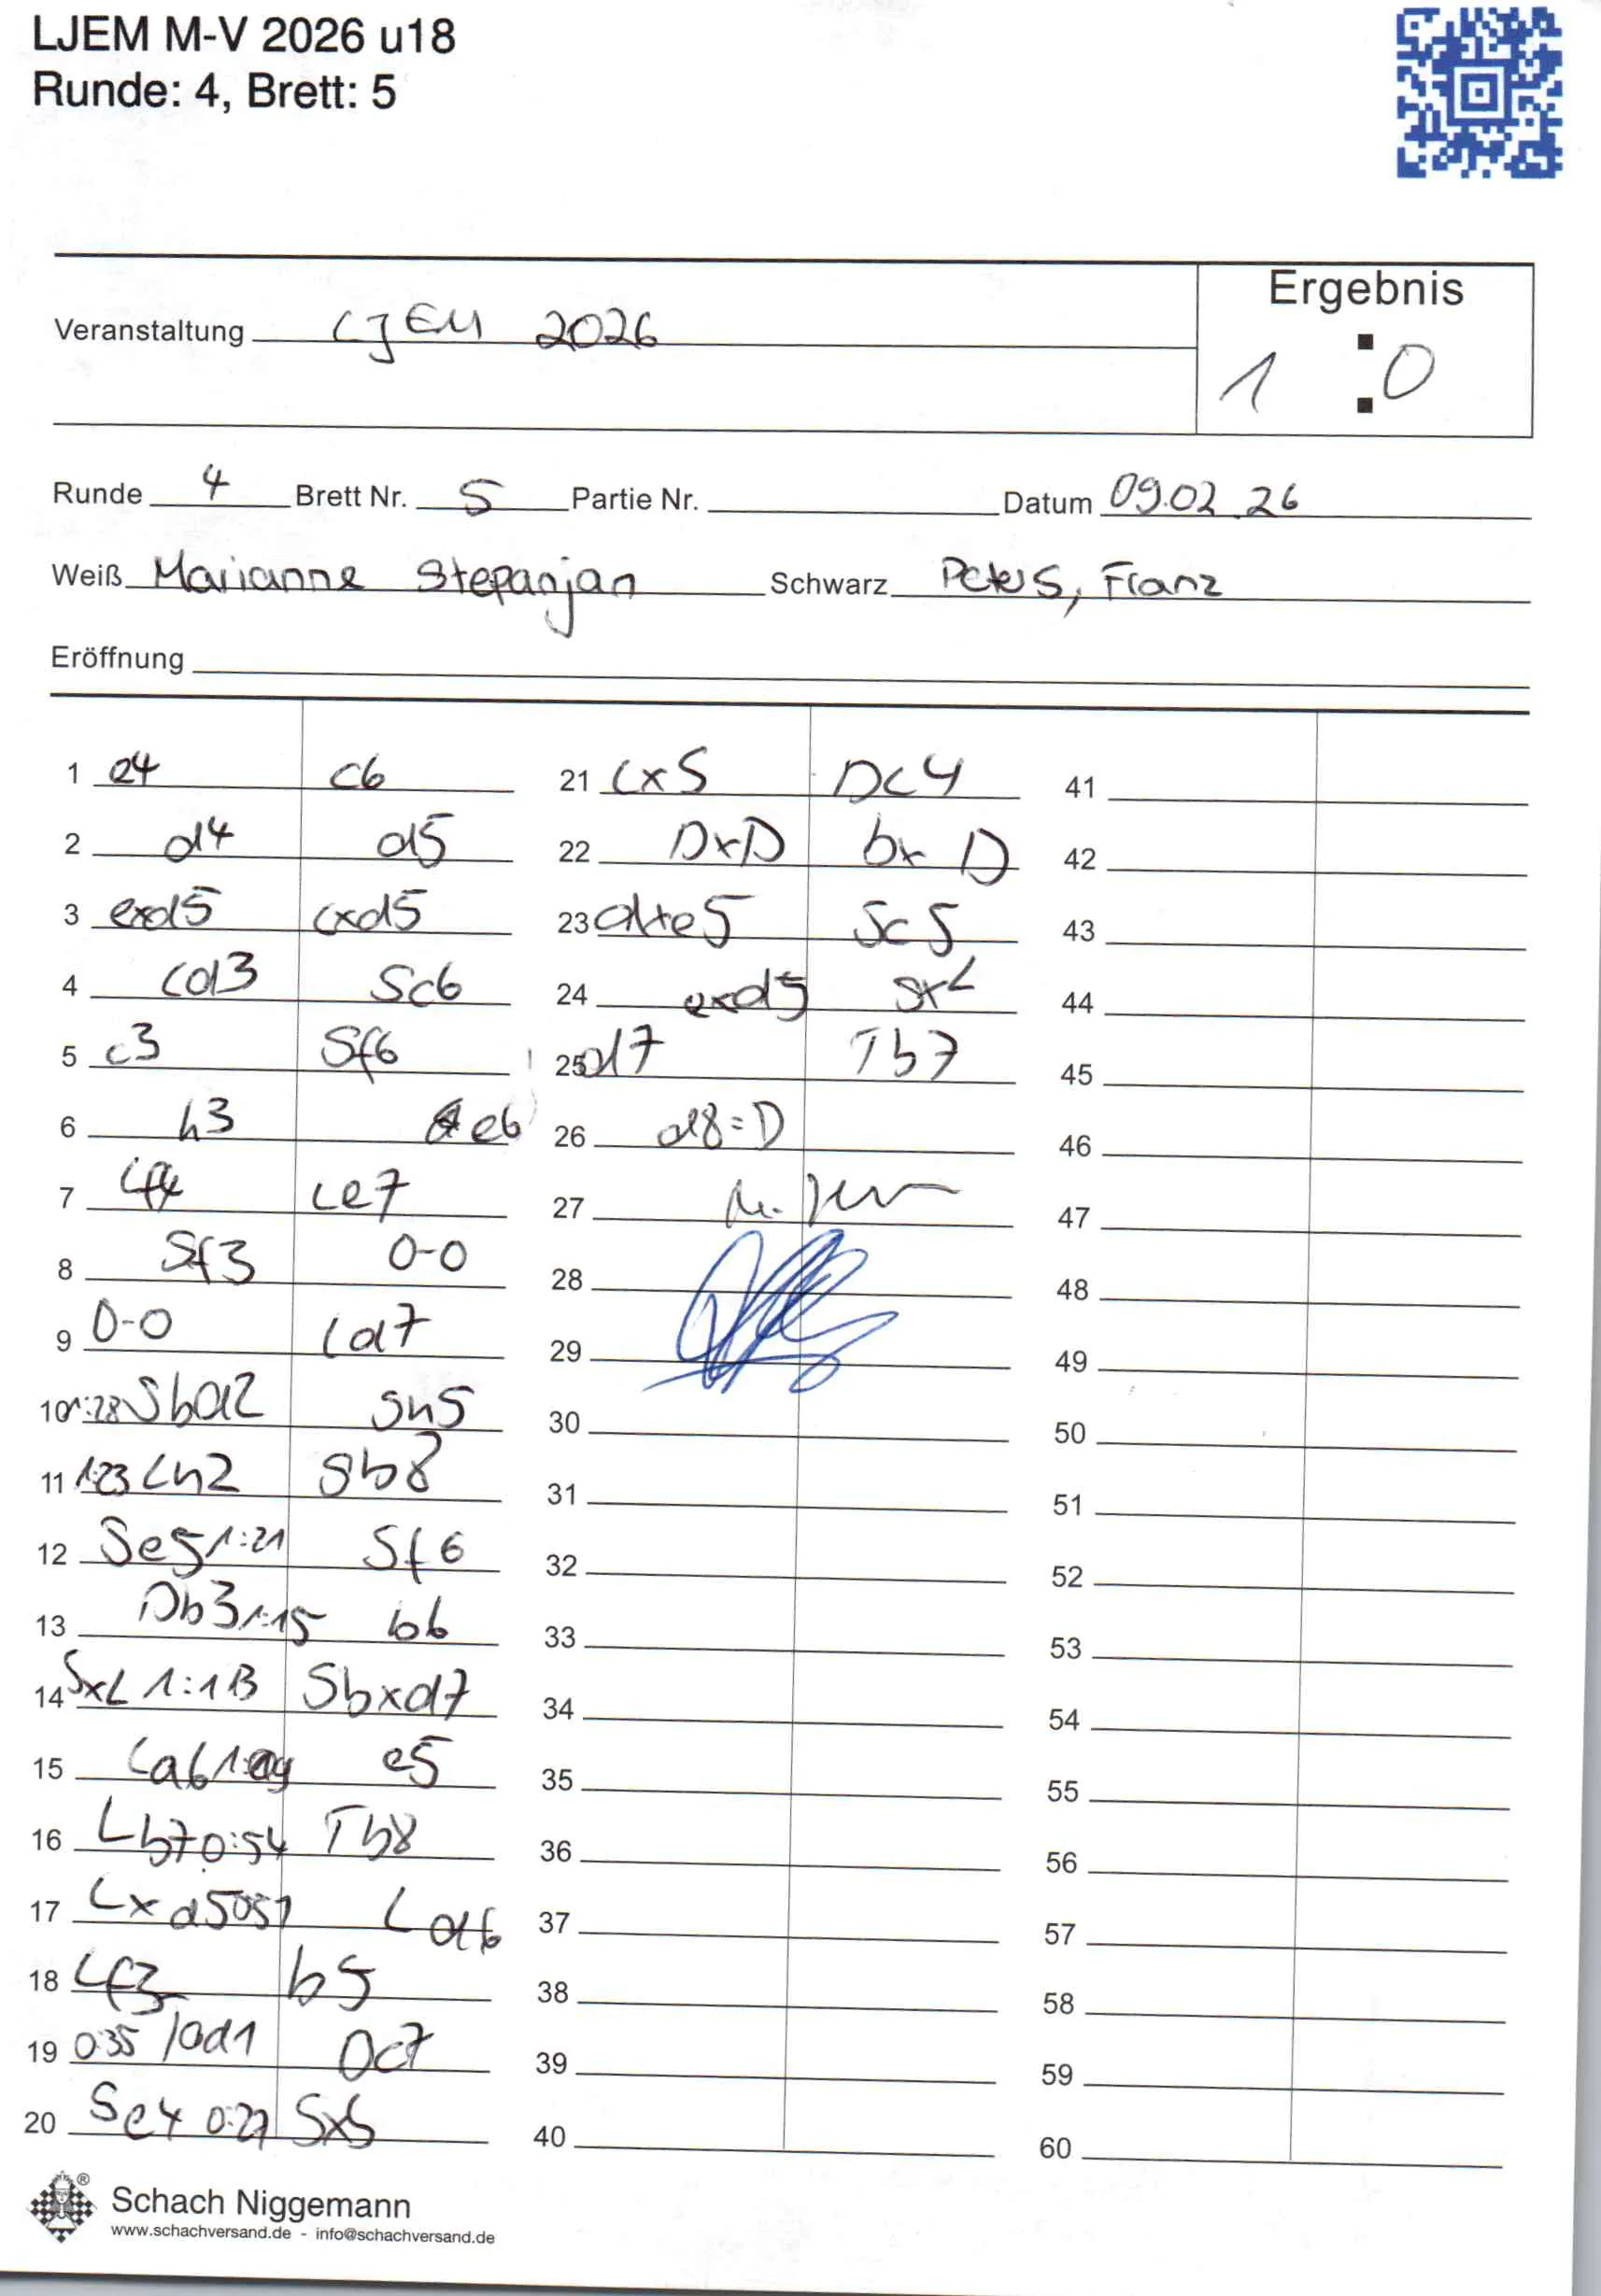 LJEM M-V 2026 u18
Runde: 4, Brett: 5
Ergebnis
Veranstaltung LJEM 2026
1 : 0
Runde 4 Brett Nr. 5 Partie Nr. Datum 09.02.26
Weiß Marianne Stepanjan Schwarz Peters, Franz
Eröffnung
1 e4 c6
2 d4 d5
3 exd5 cxd5
4 Ld3 Sc6
5 c3 Sf6
6 h3 e6
7 Lf4 Le7
8 Sf3 0-0
9 0-0 Ld7
10 1:28 Sbd2 Sh5
11 1:23 Lh2 Sb8
12 Se5 1:21 Sf6
13 Db3 1:15 b6
14 SxL 1:13 Sbxd7
15 La6 e5
16 Lb7 0:54 Tb8
17 Lxd5 051 Ld6
18 Lf3 b5
19 0:35 Tad1 Dc7
20 Se4 0:27 SxS
21 LxS Dc4
22 DxD bxD
23 dxe5 Sc5
24 exd5 SxL
25 d7 Tb7
26 d8=D
27
28
29
30
31
32
33
34
35
36
37
38
39
40
41
42
43
44
45
46
47
48
49
50
51
52
53
54
55
56
57
58
59
60
Schach Niggemann
www.schachversand.de - info@schachversand.de